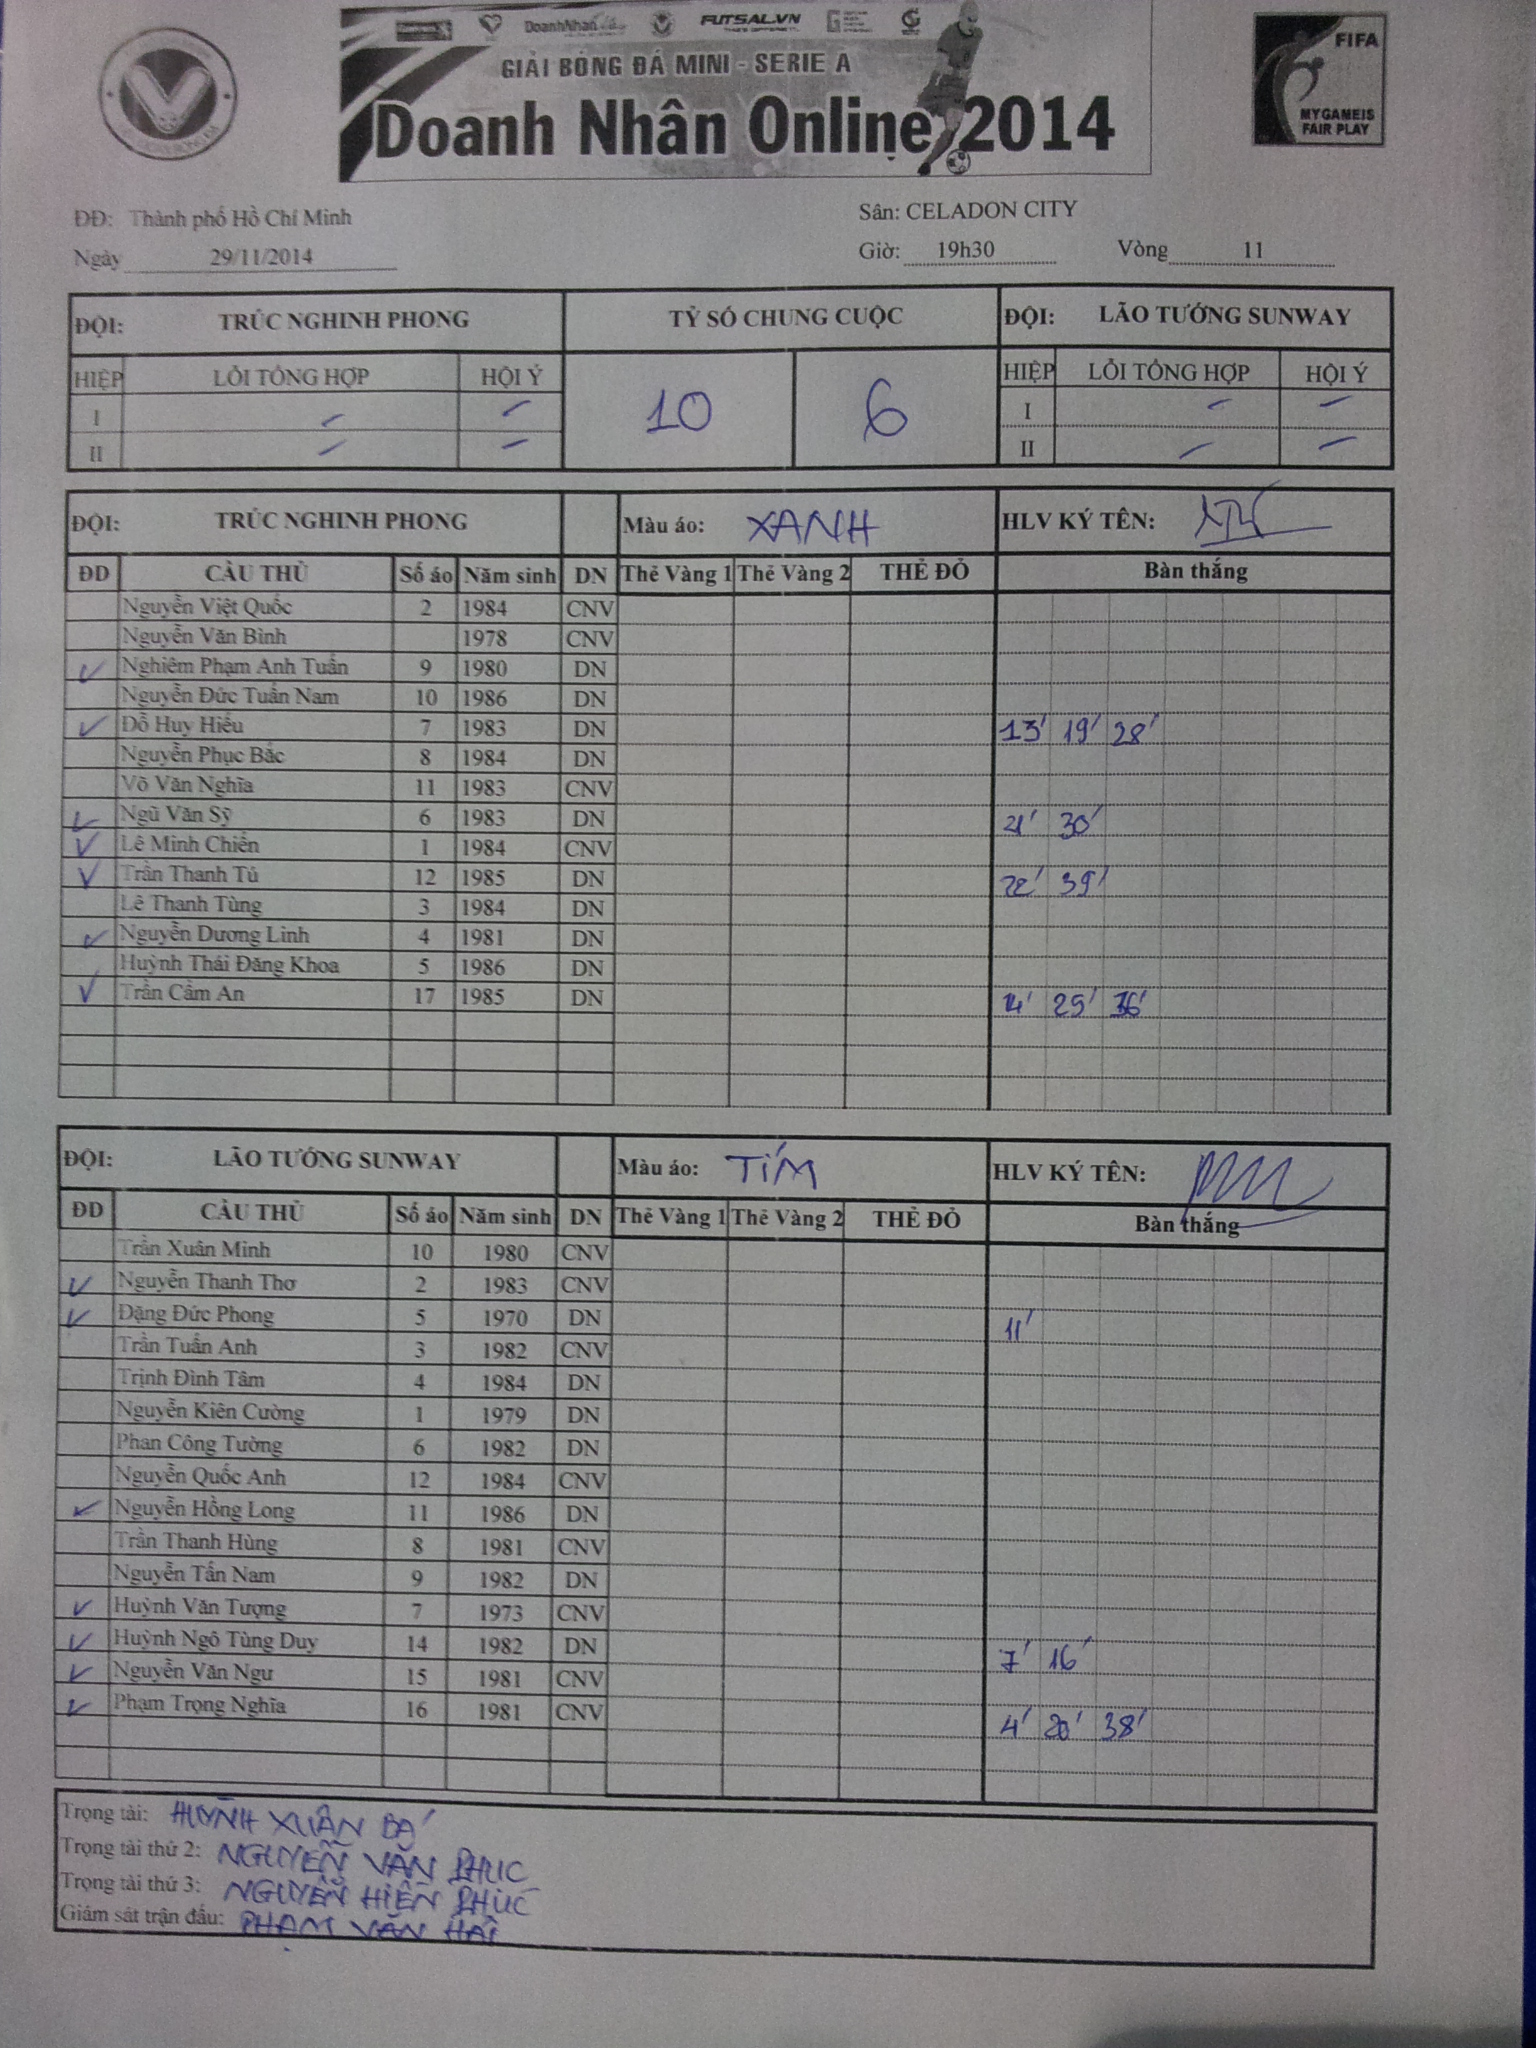 FUTSAL.VN
GIẢI BÓNG ĐÁ MINI - SERIE A
Doanh Nhân Online 2014
FIFA
MY GAME IS
FAIR PLAY
ĐĐ: Thành phố Hồ Chí Minh Sân: CELADON CITY
Ngày 29/11/2014 Giờ: 19h30 Vòng 11
ĐỘI: TRÚC NGHINH PHONG TỶ SỐ CHUNG CUỘC ĐỘI: LÃO TƯỚNG SUNWAY
HIỆP LỖI TỔNG HỢP HỘI Ý 10 6 HIỆP LỖI TỔNG HỢP HỘI Ý
I - - I - -
II - - II - -
ĐỘI: TRÚC NGHINH PHONG Màu áo: XANH HLV KÝ TÊN:
ĐD CẦU THỦ Số áo Năm sinh DN Thẻ Vàng 1 Thẻ Vàng 2 THẺ ĐỎ Bàn thắng
Nguyễn Việt Quốc 2 1984 CNV
Nguyễn Văn Bình 1978 CNV
✓ Nghiêm Phạm Anh Tuấn 9 1980 DN
Nguyễn Đức Tuấn Nam 10 1986 DN
✓ Đỗ Huy Hiếu 7 1983 DN 13' 19' 28'
Nguyễn Phục Bắc 8 1984 DN
Võ Văn Nghĩa 11 1983 CNV
✓ Ngũ Văn Sỹ 6 1983 DN 21' 30'
✓ Lê Minh Chiến 1 1984 CNV
✓ Trần Thanh Tú 12 1985 DN 22' 39'
Lê Thanh Tùng 3 1984 DN
✓ Nguyễn Dương Linh 4 1981 DN
Huỳnh Thái Đăng Khoa 5 1986 DN
✓ Trần Cẩm An 17 1985 DN 14' 25' 36'
ĐỘI: LÃO TƯỚNG SUNWAY Màu áo: TÍM HLV KÝ TÊN:
ĐD CẦU THỦ Số áo Năm sinh DN Thẻ Vàng 1 Thẻ Vàng 2 THẺ ĐỎ Bàn thắng
Trần Xuân Minh 10 1980 CNV
✓ Nguyễn Thanh Thơ 2 1983 CNV
✓ Đặng Đức Phong 5 1970 DN 11'
Trần Tuấn Anh 3 1982 CNV
Trịnh Đình Tâm 4 1984 DN
Nguyễn Kiên Cường 1 1979 DN
Phan Công Tường 6 1982 DN
Nguyễn Quốc Anh 12 1984 CNV
✓ Nguyễn Hồng Long 11 1986 DN
Trần Thanh Hùng 8 1981 CNV
Nguyễn Tấn Nam 9 1982 DN
✓ Huỳnh Văn Tượng 7 1973 CNV
✓ Huỳnh Ngô Tùng Duy 14 1982 DN 7' 16'
✓ Nguyễn Văn Ngư 15 1981 CNV
✓ Phạm Trọng Nghĩa 16 1981 CNV 4' 20' 38'
Trọng tài: HUỲNH XUÂN BÁ
Trọng tài thứ 2: NGUYỄN VĂN PHÚC
Trọng tài thứ 3: NGUYỄN HIỀN PHÚC
Giám sát trận đấu: PHẠM VĂN HẢI